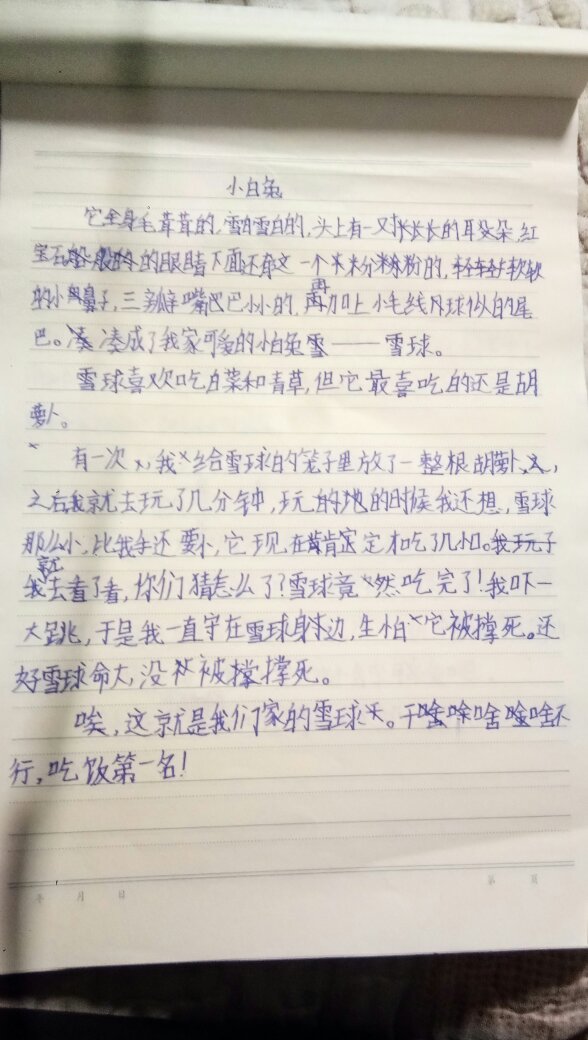 小白兔
它全身毛茸茸的,雪白雪白的,头上有一对长长的耳朵,红
宝石般的眼睛下面还有这一个粉粉的,轻轻软软
的小鼻子,三瓣嘴巴小小的,再加上小毛线球似的尾
巴。凑成了我家可爱的小白兔——雪球。
雪球喜欢吃白菜和青草,但它最喜吃的还是胡
萝卜。
有一次,我给雪球的笼子里放了一整根胡萝卜,
之后我就去玩了几分钟,玩的时候我还想,雪球
那么小,比我手还要小,它现在肯定才吃了几小口。
我就去看了看,你们猜怎么了?雪球竟然吃完了!我吓一
大跳,于是我一直守在雪球身边,生怕它被撑死。还
好雪球命大,没被撑死。
唉,这就是我们家的雪球。干啥啥不
行,吃饭第一名!
年 月 日 第 页